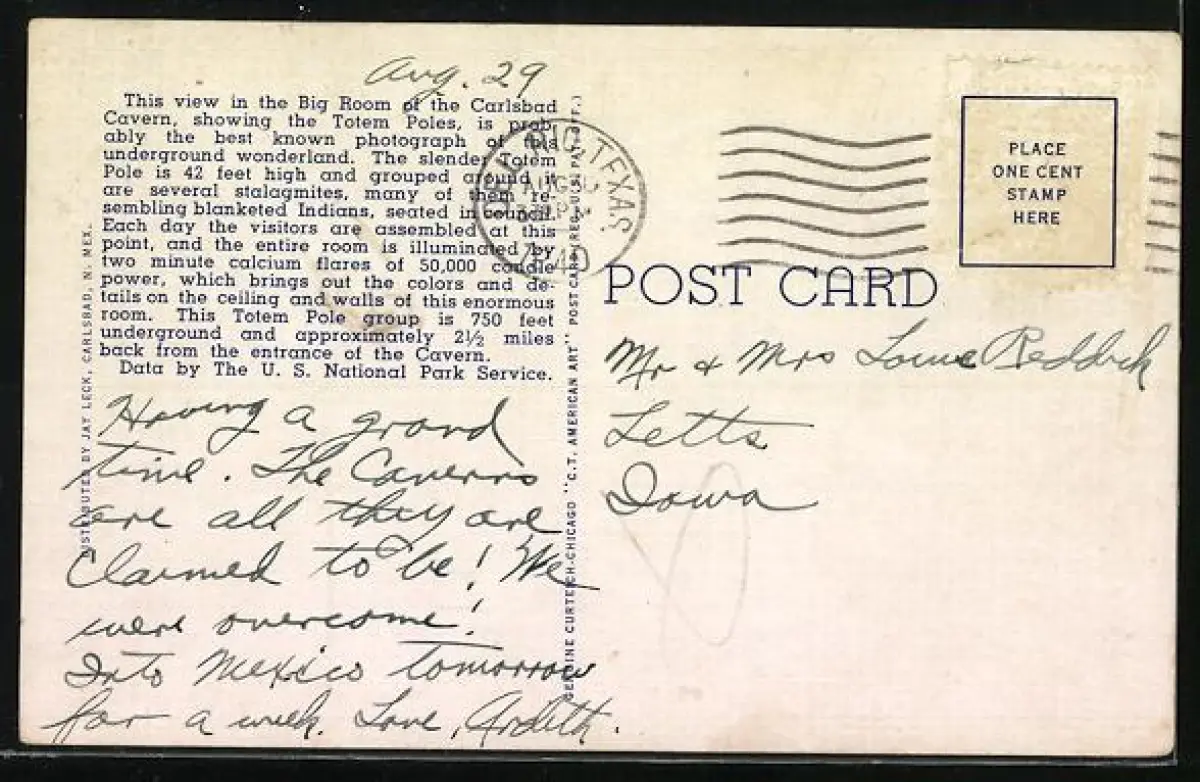 Aug. 29
This view in the Big Room of the Carlsbad
Cavern, showing the Totem Poles, is prob-
ably the best known photograph of this
underground wonderland. The slender Totem
Pole is 42 feet high and grouped around it
are several stalagmites, many of them re-
sembling blanketed Indians, seated in council.
Each day the visitors are assembled at this
point, and the entire room is illuminated by
two minute calcium flares of 50,000 candle
power, which brings out the colors and de-
tails on the ceiling and walls of this enormous
room. This Totem Pole group is 750 feet
underground and approximately 2½ miles
back from the entrance of the Cavern.
Data by The U. S. National Park Service.
Having a grand
time. The Caverns
are all they are
claimed to be! We
were overcome!
Into Mexico tomorrow
for a week. Love, Ardith.
DISTRIBUTED BY JAY LECK, CARLSBAD, N. MEX.
GENUINE CURTEICH-CHICAGO "C.T. AMERICAN ART" POST CARD (REG. U.S. PAT. OFF.)
RIO, TEXAS.
AUG 30
PM
1940
POST CARD
PLACE
ONE CENT
STAMP
HERE
Mr & Mrs Louie Reddick
Letts
Iowa